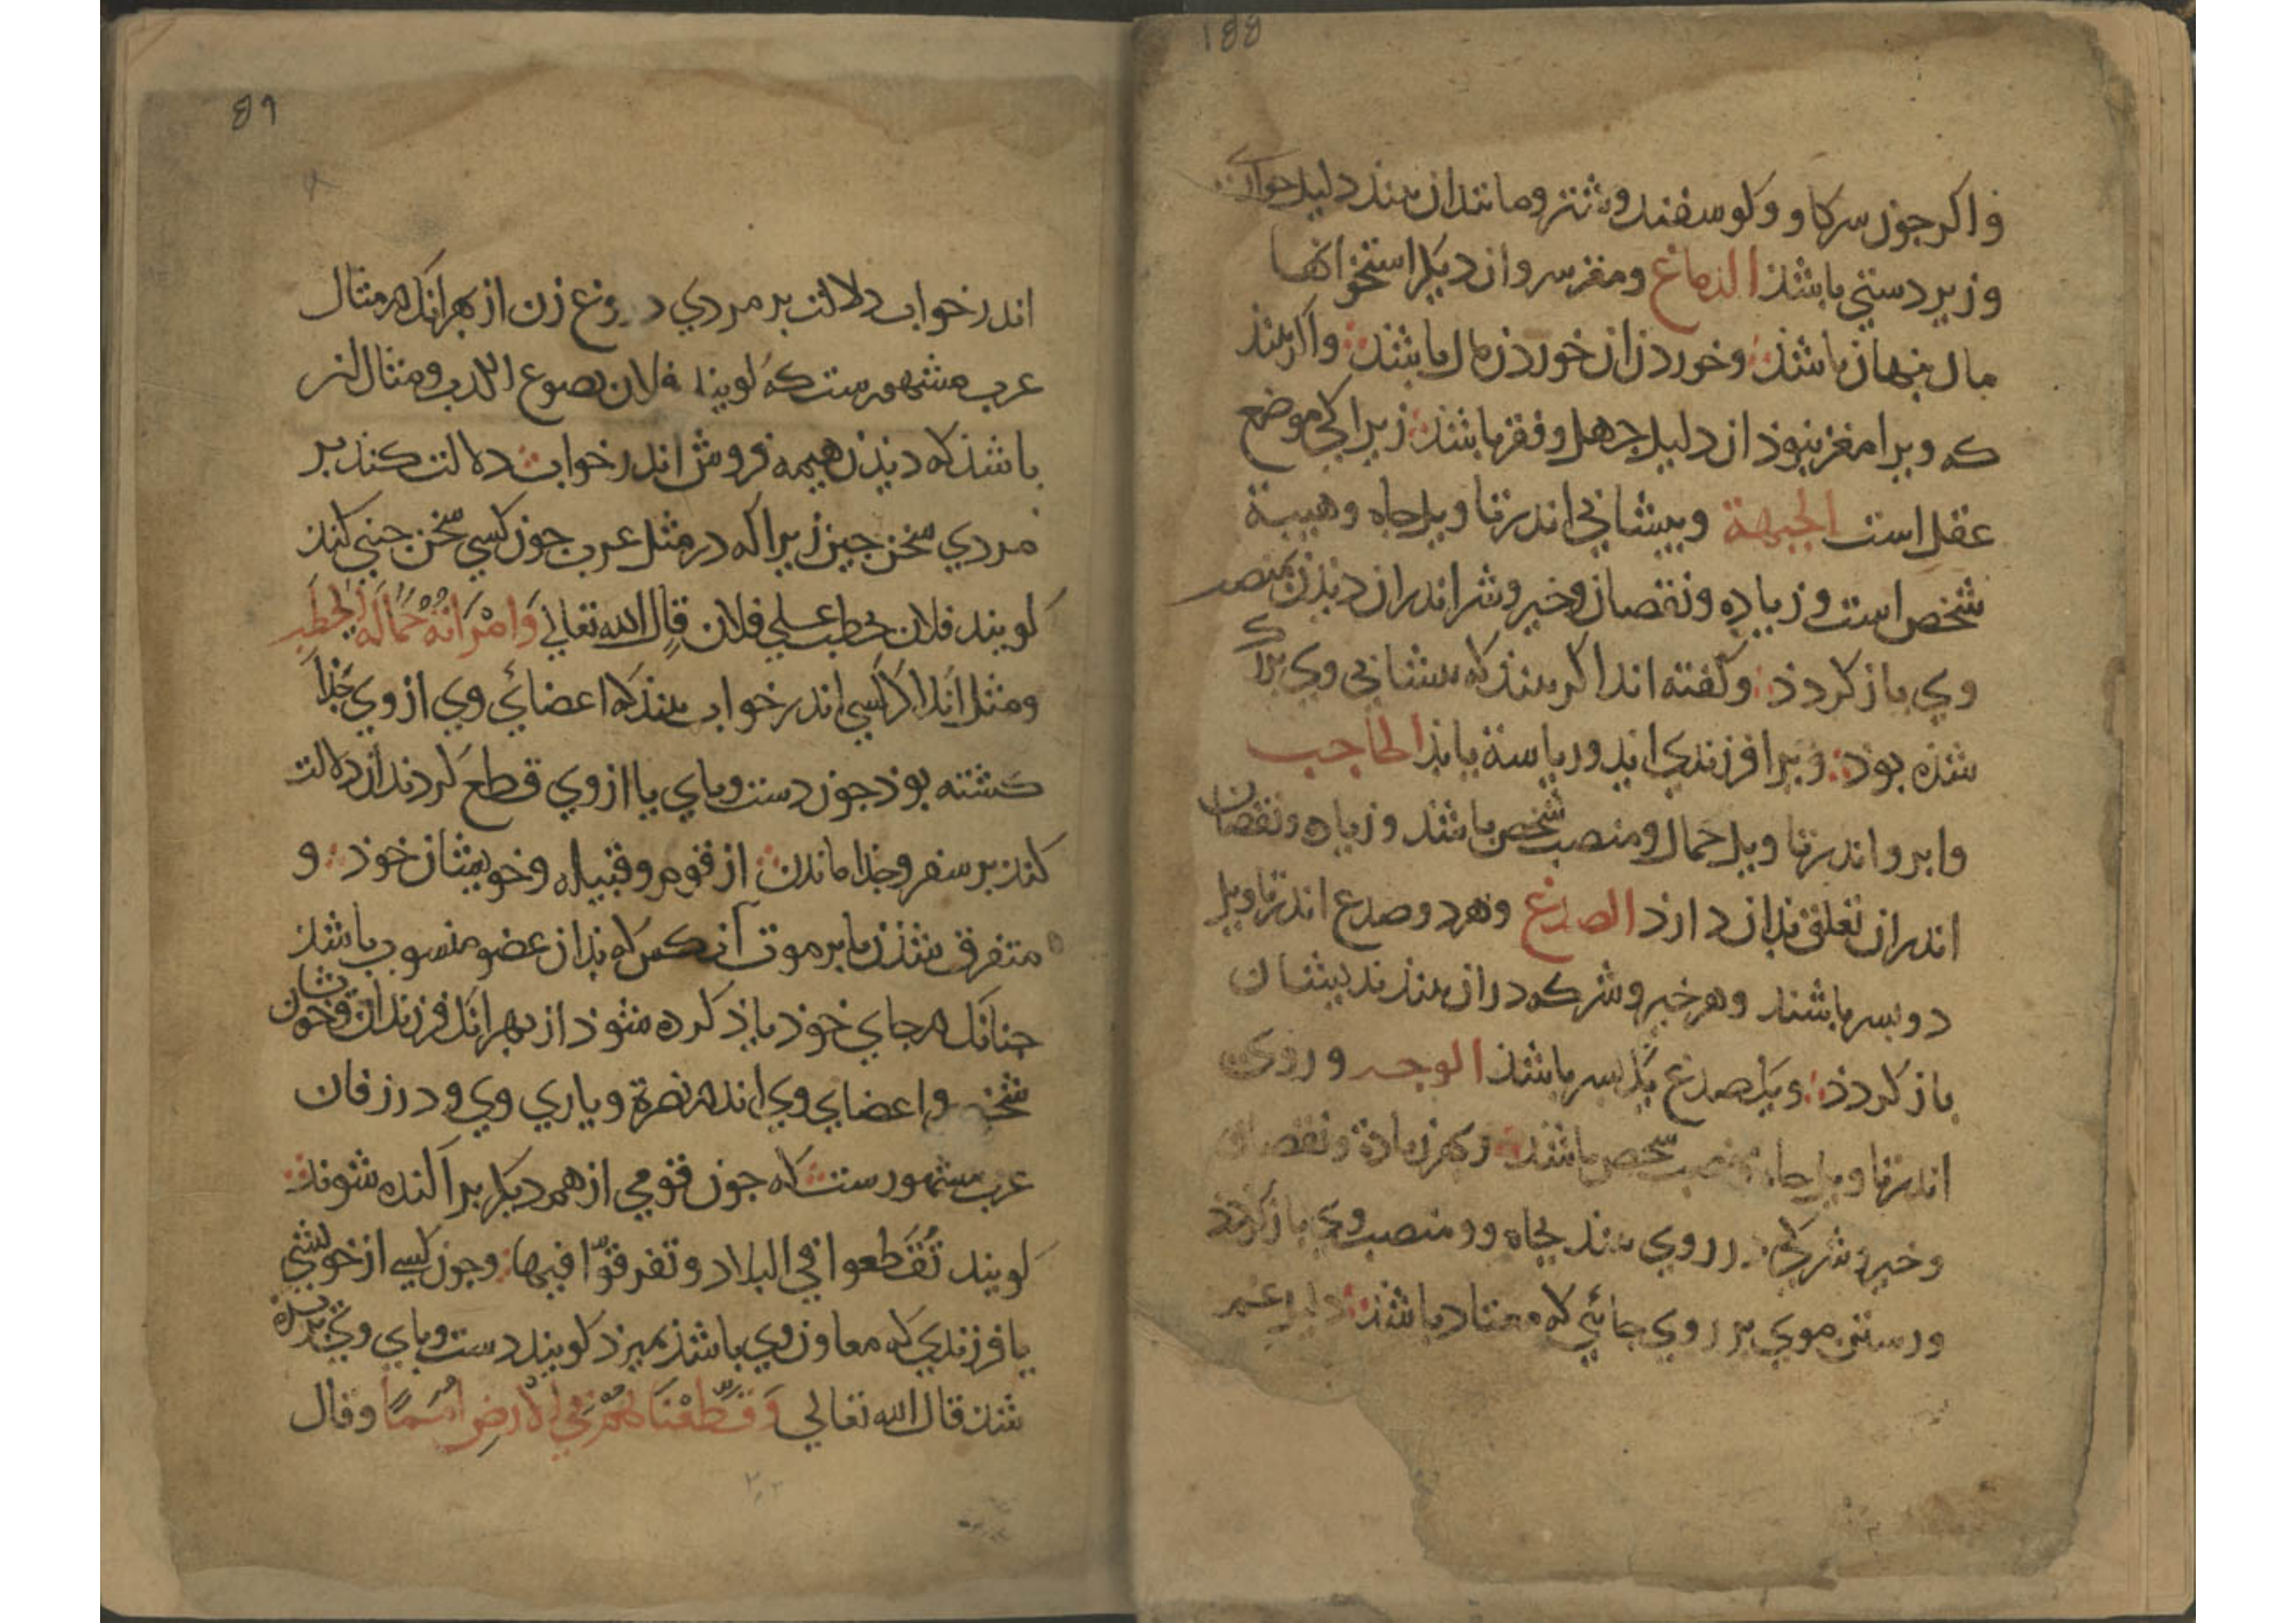 188
و اکر جون سر کاو و کوسفند و شتر و مانند ان بیند دلیل خواری
و زیر دستی باشذ الدماغ و مغز سر و ان دیکر استخوانها
مال بنهان باشذ و خوردن ان خوردن مال باشذ و اکر بیند
که ویرا مغز نبوذ ان دلیل جهل و فقر باشذ زیرا کی موضع
عقل است الجبهة و بیشانی اندر تاویل جاه و هیبة
شخص است و زیاده و نقصان و خیر و شر اندران دیذن بمنصب
وی باز کردذ و کفته اند اکر بیند که بیشانی وی بزرک
شذه بوذ ویرا فرزندی اید و ریاسة یابذ الحاجب
و ابرو اندر تاویل جمال و منصب شخص باشذ و زیاده و نقصان
اندران تعلق بذان دارذ الصدغ و هر دو صدغ اندر تاویل
دو بسر باشند و هر خیر و شر که دران بیند بذیشان
باز کردذ و یک صدغ یک بسر باشذ الوجه و روی
اندر تاویل جاه و منصب شخص باشذ و هر زیادة و نقصان
و خیر و شر که در روی بیند بجاه و و منصب وی باز کردذ
و رستن موی بر روی جائی که معتاد باشذ دلیل غم
89
اندر خواب دلالت بر مردی دروغ زن از بهر انک در مثال
عرب مشهورست که کویند فلان یصوغ الکذب و مثال انر
باشذ که دیذن هیمه فروش اندر خواب دلالت کنذ بر
مردی سخن جین زیرا که در مثل عرب جون کسی سخن جنی کند
کویند فلان یحطب علی فلان قال الله تعالی وَامْرَاَتُهُ حَمَّالَةَ الحَطَبِ
و مثل انک اکر کسی اندر خواب بیند که اعضائ وی از وی جذا
کشته بوذ جون دست و بای یا از وی قطع کردند ان دلالت
کند بر سفر و جذا ماندن از قوم و قبیله و خویشان خوذ و
متفرق شذن یا بر موت آن کس که بذان عضو منسوب باشذ
جنانک در جای خوذ یاذ کرده شوذ از بهر انک فرزندان و خویشان
شخص و اعضای وی اند در نصرة و یاری وی و در زفان
عرب مشهورست که جون قومی از هم دیکر براکنده شوند
کویند تَقَطَّعوا فی البلاد و تفرقوّا فیها و جون کسی از خویشی
یا فرزندی که معاون وی باشذ بمیرد کویند دست و بای وی بریده
شذ قال الله تعالی وَقَطَّعْنَاهُمْ فِي الْاَرْضِ اُمَمًا و قال